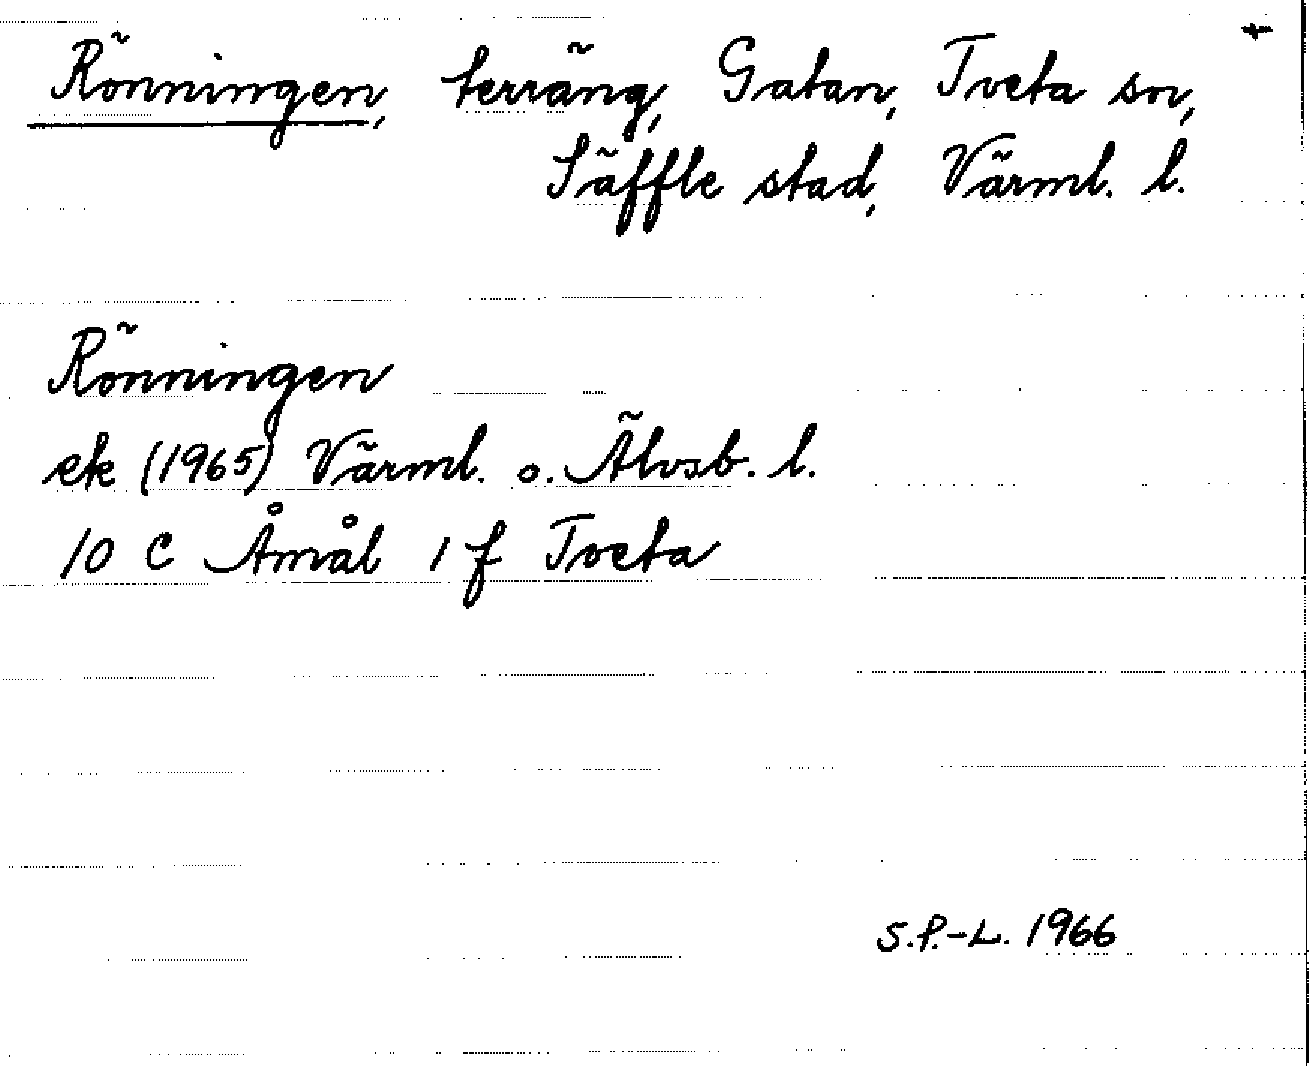 Rönningen, terräng, Gatan, Tveta sn,
Säffle stad, Värml. l.
Rönningen
ek (1965) Värml. o. Älvsb. l.
10 C Åmål 1 f Tveta
S.P.-L. 1966